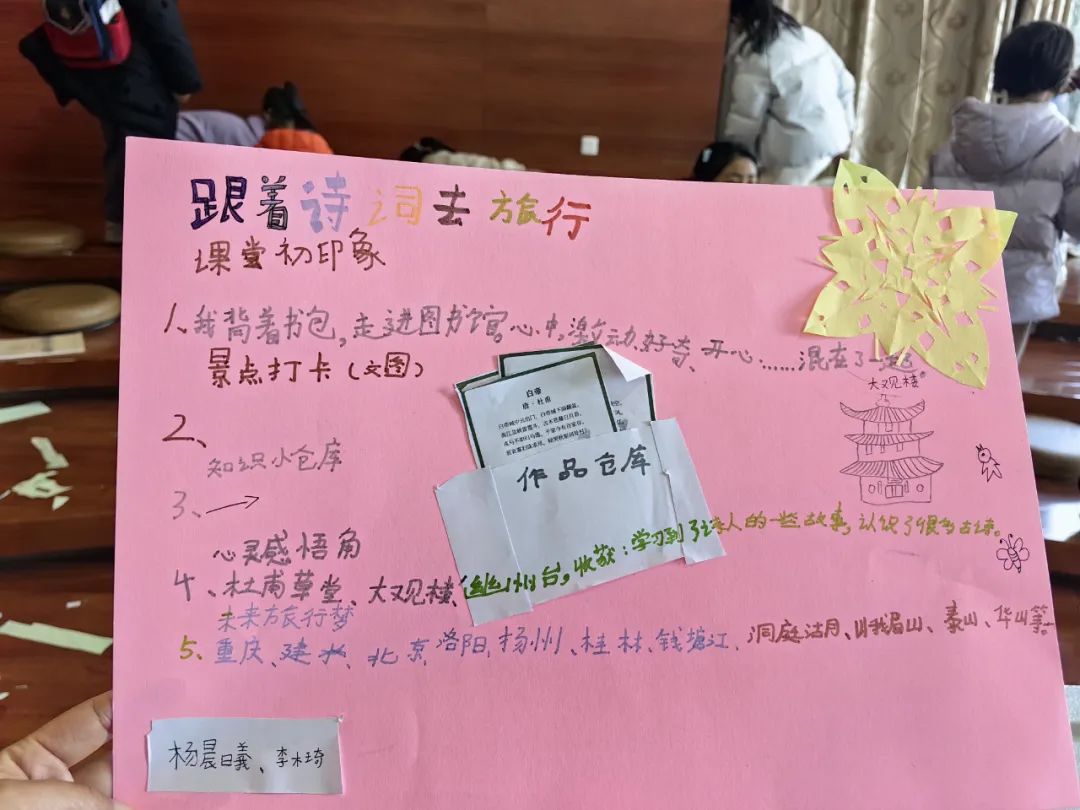 跟着诗词去旅行
课堂初印象
1、我背着书包,走进图书馆,心中,激动、好奇、开心……混在了一起
景点打卡(文图)
大观楼
2、
知识小仓库
3、→
作品仓库
白帝
唐·杜甫
心灵感悟角
4、杜甫草堂、大观楼、幽州台,收获:学习到了诗人的一些故事,认识了很多古诗。
未来旅行梦
5、重庆、建水、北京、洛阳、扬州、桂林、钱塘江、洞庭湖、峨眉山、泰山、华山等。
杨晨曦、李木琦